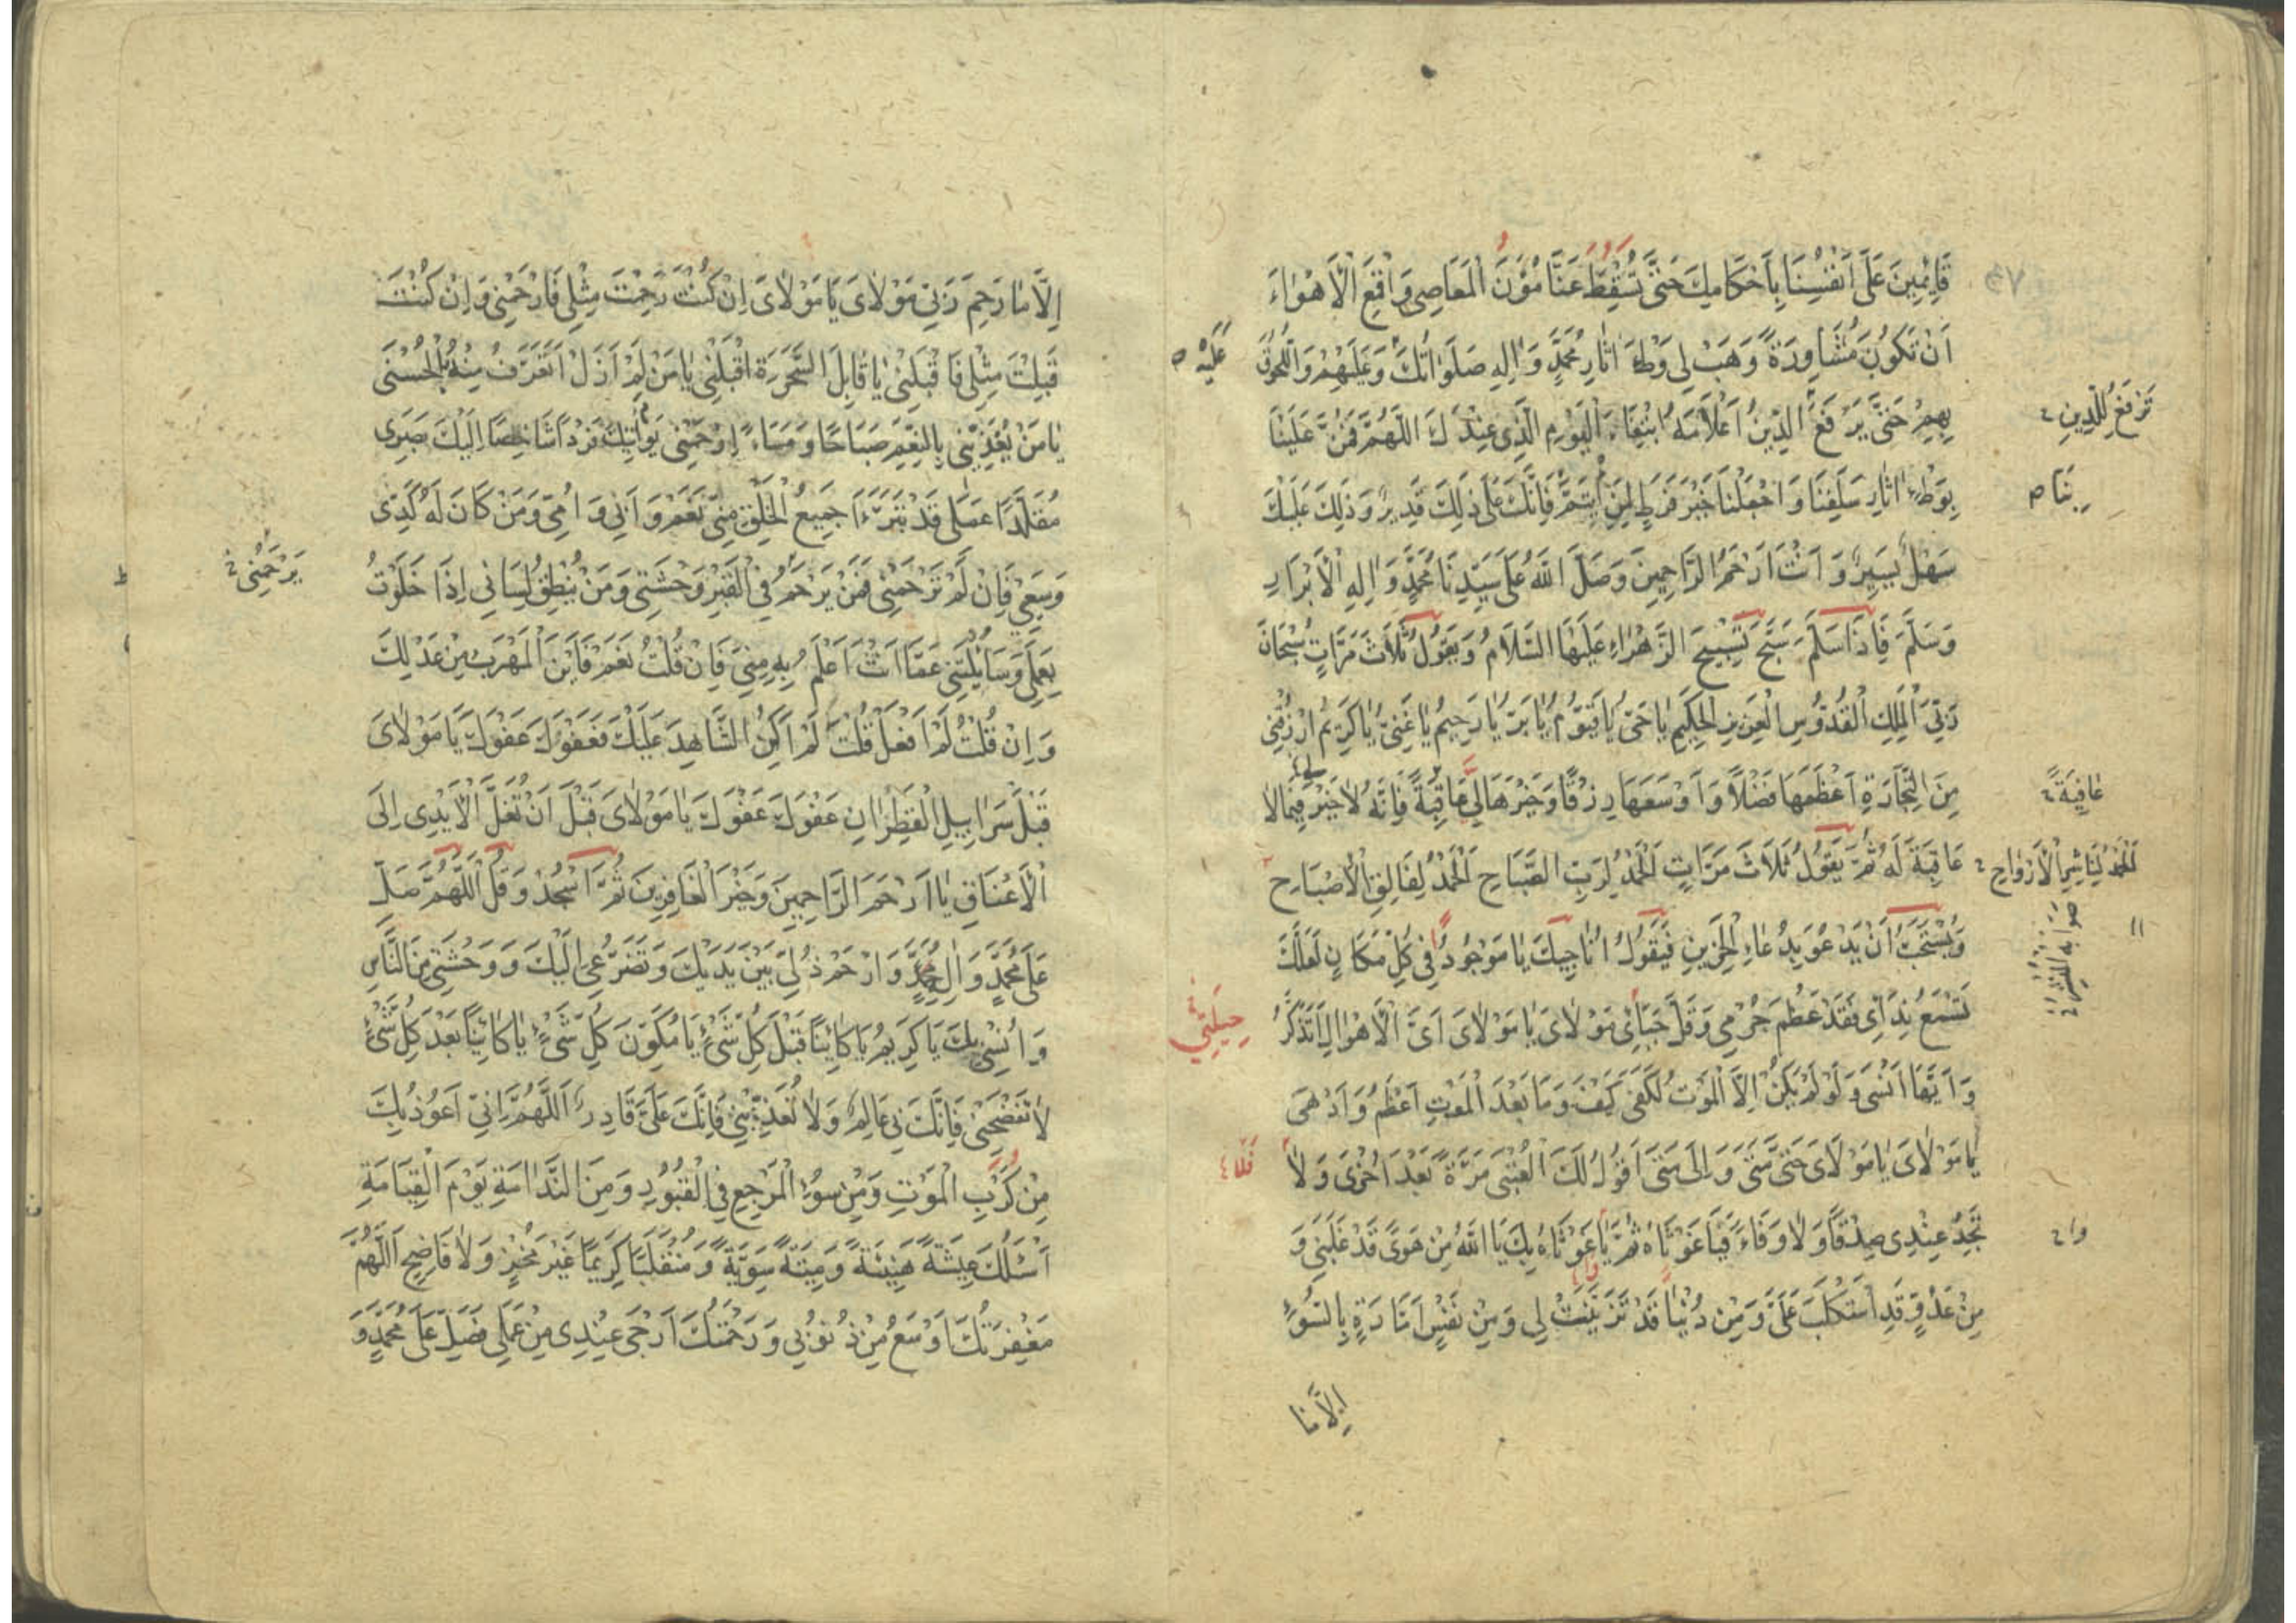 قَائِمِينَ عَلَى اَنْفُسِنَا بِاَحْكَامِكَ حَتَّى تُسْقِطَ عَنَّا مُؤَنَ الْمَعَاصِي وَاقْمَعِ الْاَهْوَاءَ
اَنْ تَكُونَ مُشَاوِرَةً وَهَبْ لِي وَطْءَ اٰثَارِ مُحَمَّدٍ وَاٰلِهِ صَلَوَاتُكَ وَعَلَيْهِمْ وَاللُّحُوقَ
عَلَيْهِ
بِهِمْ حَتَّى يَرْفَعَ الدِّينُ اَعْلَامَهُ ابْتِغَاءَ الْيَوْمِ الَّذِي عِنْدَكَ اللّٰهُمَّ فَمُنَّ عَلَيْنَا
تَرْفَعَ لِلدِّينِ
بِوَطْءِ اٰثَارِ سَلَفِنَا وَاجْعَلْنَا خَيْرَ فَرَطٍ لِمَنِ ائْتَمَّ فَاِنَّكَ عَلَى ذٰلِكَ قَدِيرٌ وَذٰلِكَ عَلَيْكَ
بِنَا
سَهْلٌ يَسِيرٌ وَاَنْتَ اَرْحَمُ الرَّاحِمِينَ وَصَلَّى اللّٰهُ عَلَى سَيِّدِنَا مُحَمَّدٍ وَاٰلِهِ الْاَبْرَارِ
وَسَلَّمَ فَاِذَا سَلَّمَ سَبَّحَ تَسْبِيحَ الزَّهْرَاءِ عَلَيْهَا السَّلَامُ وَيَقُولُ ثَلَاثَ مَرَّاتٍ سُبْحَانَ
رَبِّيَ الْمَلِكِ الْقُدُّوسِ الْعَزِيزِ الْحَكِيمِ يَا حَيُّ يَا قَيُّومُ يَا بَرُّ يَا رَحِيمُ يَا غَنِيُّ يَا كَرِيمُ ارْزُقْنِي
مِنَ التِّجَارَةِ اَعْظَمَهَا فَضْلًا وَاَوْسَعَهَا رِزْقًا وَخَيْرَهَا لِي عَاقِبَةً فَاِنَّهُ لَا خَيْرَ فِيمَا لَا
عَافِيَةً
عَاقِبَةَ لَهُ ثُمَّ يَقُولُ ثَلَاثَ مَرَّاتٍ الْحَمْدُ لِرَبِّ الصَّبَاحِ الْحَمْدُ لِفَالِقِ الْاَصْبَاحِ
الْحَمْدُ لِنَاشِرِ الْاَرْوَاحِ
وَيُسْتَحَبُّ اَنْ يَدْعُوَ بِدُعَاءِ الْحَزِينِ فَيَقُولُ اُنَاجِيكَ يَا مَوْجُودًا فِي كُلِّ مَكَانٍ لَعَلَّكَ
تَسْمَعُ نِدَائِي فَقَدْ عَظُمَ جُرْمِي وَقَلَّ حَيَائِي مَوْلَايَ يَا مَوْلَايَ اَيَّ الْاَهْوَالِ اَتَذَكَّرُ
حِيلَتِي
وَاَيَّهَا اَنْسَى وَلَوْ لَمْ يَكُنْ اِلَّا الْمَوْتُ لَكَفَى كَيْفَ وَمَا بَعْدَ الْمَوْتِ اَعْظَمُ وَاَدْهَى
يَا مَوْلَايَ يَا مَوْلَايَ حَتَّى مَتَى وَاِلَى مَتَى اَقُولُ لَكَ الْعُتْبَى مَرَّةً بَعْدَ اُخْرَى وَلَا
فَلَا
تَجِدُ عِنْدِي صِدْقًا وَلَا وَفَاءً فَيَا غَوْثَاهُ ثُمَّ يَا غَوْثَاهُ بِكَ يَا اَللّٰهُ مِنْ هَوًى قَدْ غَلَبَنِي وَ
وَا
مِنْ عَدُوٍّ قَدِ اسْتَكْلَبَ عَلَيَّ وَمِنْ دُنْيَا قَدْ تَزَيَّنَتْ لِي وَمِنْ نَفْسٍ اَمَّارَةٍ بِالسُّوءِ
اِلَّا مَا
اِلَّا مَا رَحِمَ رَبِّي مَوْلَايَ يَا مَوْلَايَ اِنْ كُنْتَ رَحِمْتَ مِثْلِي فَارْحَمْنِي وَاِنْ كُنْتَ
قَبِلْتَ مِثْلِي فَاقْبَلْنِي يَا قَابِلَ السَّحَرَةِ اقْبَلْنِي يَا مَنْ لَمْ اَزَلْ اَتَعَرَّفُ مِنْهُ الْحُسْنَى
يَا مَنْ يُغَذِّينِي بِالنِّعَمِ صَبَاحًا وَمَسَاءً ارْحَمْنِي يَوْمَ اٰتِيكَ فَرْدًا شَاخِصًا اِلَيْكَ بَصَرِي
مُقَلَّدًا عَمَلِي قَدْ تَبَرَّءَ جَمِيعُ الْخَلْقِ مِنِّي نَعَمْ وَاَبِي وَاُمِّي وَمَنْ كَانَ لَهُ كَدِّي
وَسَعْيِي فَاِنْ لَمْ تَرْحَمْنِي فَمَنْ يَرْحَمُ فِي الْقَبْرِ وَحْشَتِي وَمَنْ يُنْطِقُ لِسَانِي اِذَا خَلَوْتُ
يَرْحَمُنِي
بِعَمَلِي وَسَاءَلْتَنِي عَمَّا اَنْتَ اَعْلَمُ بِهِ مِنِّي فَاِنْ قُلْتُ نَعَمْ فَاَيْنَ الْمَهْرَبُ مِنْ عَدْلِكَ
وَاِنْ قُلْتُ لَمْ اَفْعَلْ قُلْتَ اَلَمْ اَكُنِ الشَّاهِدَ عَلَيْكَ فَعَفْوَكَ عَفْوَكَ يَا مَوْلَايَ
قَبْلَ سَرَابِيلِ الْقَطِرَانِ عَفْوَكَ عَفْوَكَ يَا مَوْلَايَ قَبْلَ اَنْ تُغَلَّ الْاَيْدِي اِلَى
الْاَعْنَاقِ يَا اَرْحَمَ الرَّاحِمِينَ وَخَيْرَ الْغَافِرِينَ ثُمَّ اسْجُدْ وَقُلْ اَللّٰهُمَّ صَلِّ
عَلَى مُحَمَّدٍ وَاٰلِ مُحَمَّدٍ وَارْحَمْ ذُلِّي بَيْنَ يَدَيْكَ وَتَضَرُّعِي اِلَيْكَ وَوَحْشَتِي مِنَ النَّاسِ
وَاُنْسِي بِكَ يَا كَرِيمُ يَا كَائِنًا قَبْلَ كُلِّ شَيْءٍ يَا مُكَوِّنَ كُلِّ شَيْءٍ يَا كَائِنًا بَعْدَ كُلِّ شَيْءٍ
لَا تَفْضَحْنِي فَاِنَّكَ بِي عَالِمٌ وَلَا تُعَذِّبْنِي فَاِنَّكَ عَلَيَّ قَادِرٌ اَللّٰهُمَّ اِنِّي اَعُوذُ بِكَ
مِنْ كَرْبِ الْمَوْتِ وَمِنْ سُوءِ الْمَرْجِعِ فِي الْقُبُورِ وَمِنَ النَّدَامَةِ يَوْمَ الْقِيَامَةِ
اَسْئَلُكَ عِيشَةً هَنِيئَةً وَمِيتَةً سَوِيَّةً وَمُنْقَلَبًا كَرِيمًا غَيْرَ مُخْزٍ وَلَا فَاضِحٍ اَللّٰهُمَّ
مَغْفِرَتُكَ اَوْسَعُ مِنْ ذُنُوبِي وَرَحْمَتُكَ اَرْجَى عِنْدِي مِنْ عَمَلِي فَصَلِّ عَلَى مُحَمَّدٍ وَ